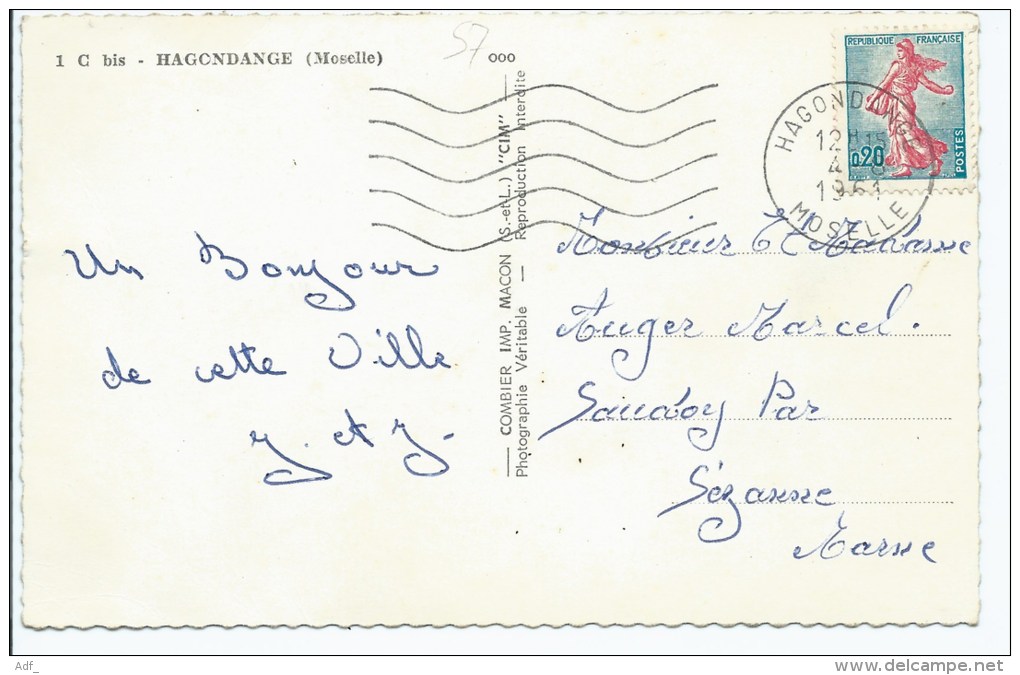 57
1 C bis - HAGONDANGE (Moselle)
ooo
REPUBLIQUE FRANÇAISE
0,20
POSTES
HAGONDANGE
12H15
1961
MOSELLE
Un Bonjour
de cette Ville
J. et J.
COMBIER IMP. MACON (S.-et-L.) "CIM"
Photographie Véritable — Reproduction Interdite
Monsieur Et Madame
Auger Marcel.
Saudoy Par
Sézanne
Marne
Adf_
www.delcampe.net